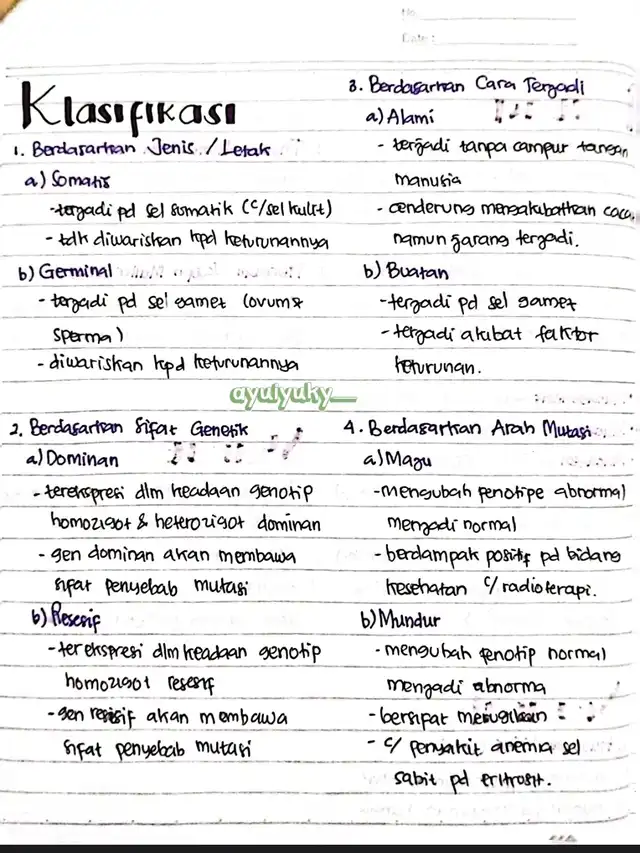 No.
Date :
Klasifikasi
1. Berdasarkan Jenis / Letak
a) Somatis
- terjadi pd sel somatik (c/ sel kulit)
- tdk diwariskan kpd keturunannya
b) Germinal
- terjadi pd sel gamet (ovum &
sperma)
- diwariskan kpd keturunannya
ayuiyuky__
2. Berdasarkan Sifat Genetik
a) Dominan
- terekspresi dlm keadaan genotip
homozigot & heterozigot dominan
- gen dominan akan membawa
sifat penyebab mutasi
b) Resesif
- terekspresi dlm keadaan genotip
homozigot resesif
- gen resesif akan membawa
sifat penyebab mutasi
3. Berdasarkan Cara Terjadi
a) Alami
- terjadi tanpa campur tangan
manusia
- cenderung mengakibatkan
namun jarang terjadi.
b) Buatan
- terjadi pd sel gamet
- terjadi akibat faktor
keturunan.
4. Berdasarkan Arah Mutasi
a) Maju
- mengubah fenotipe abnormal
menjadi normal
- berdampak positif pd bidang
kesehatan c/ radioterapi.
b) Mundur
- mengubah fenotip normal
menjadi abnorma
- bersifat merugikan
- c/ penyakit anemia sel
sabit pd eritrosit.